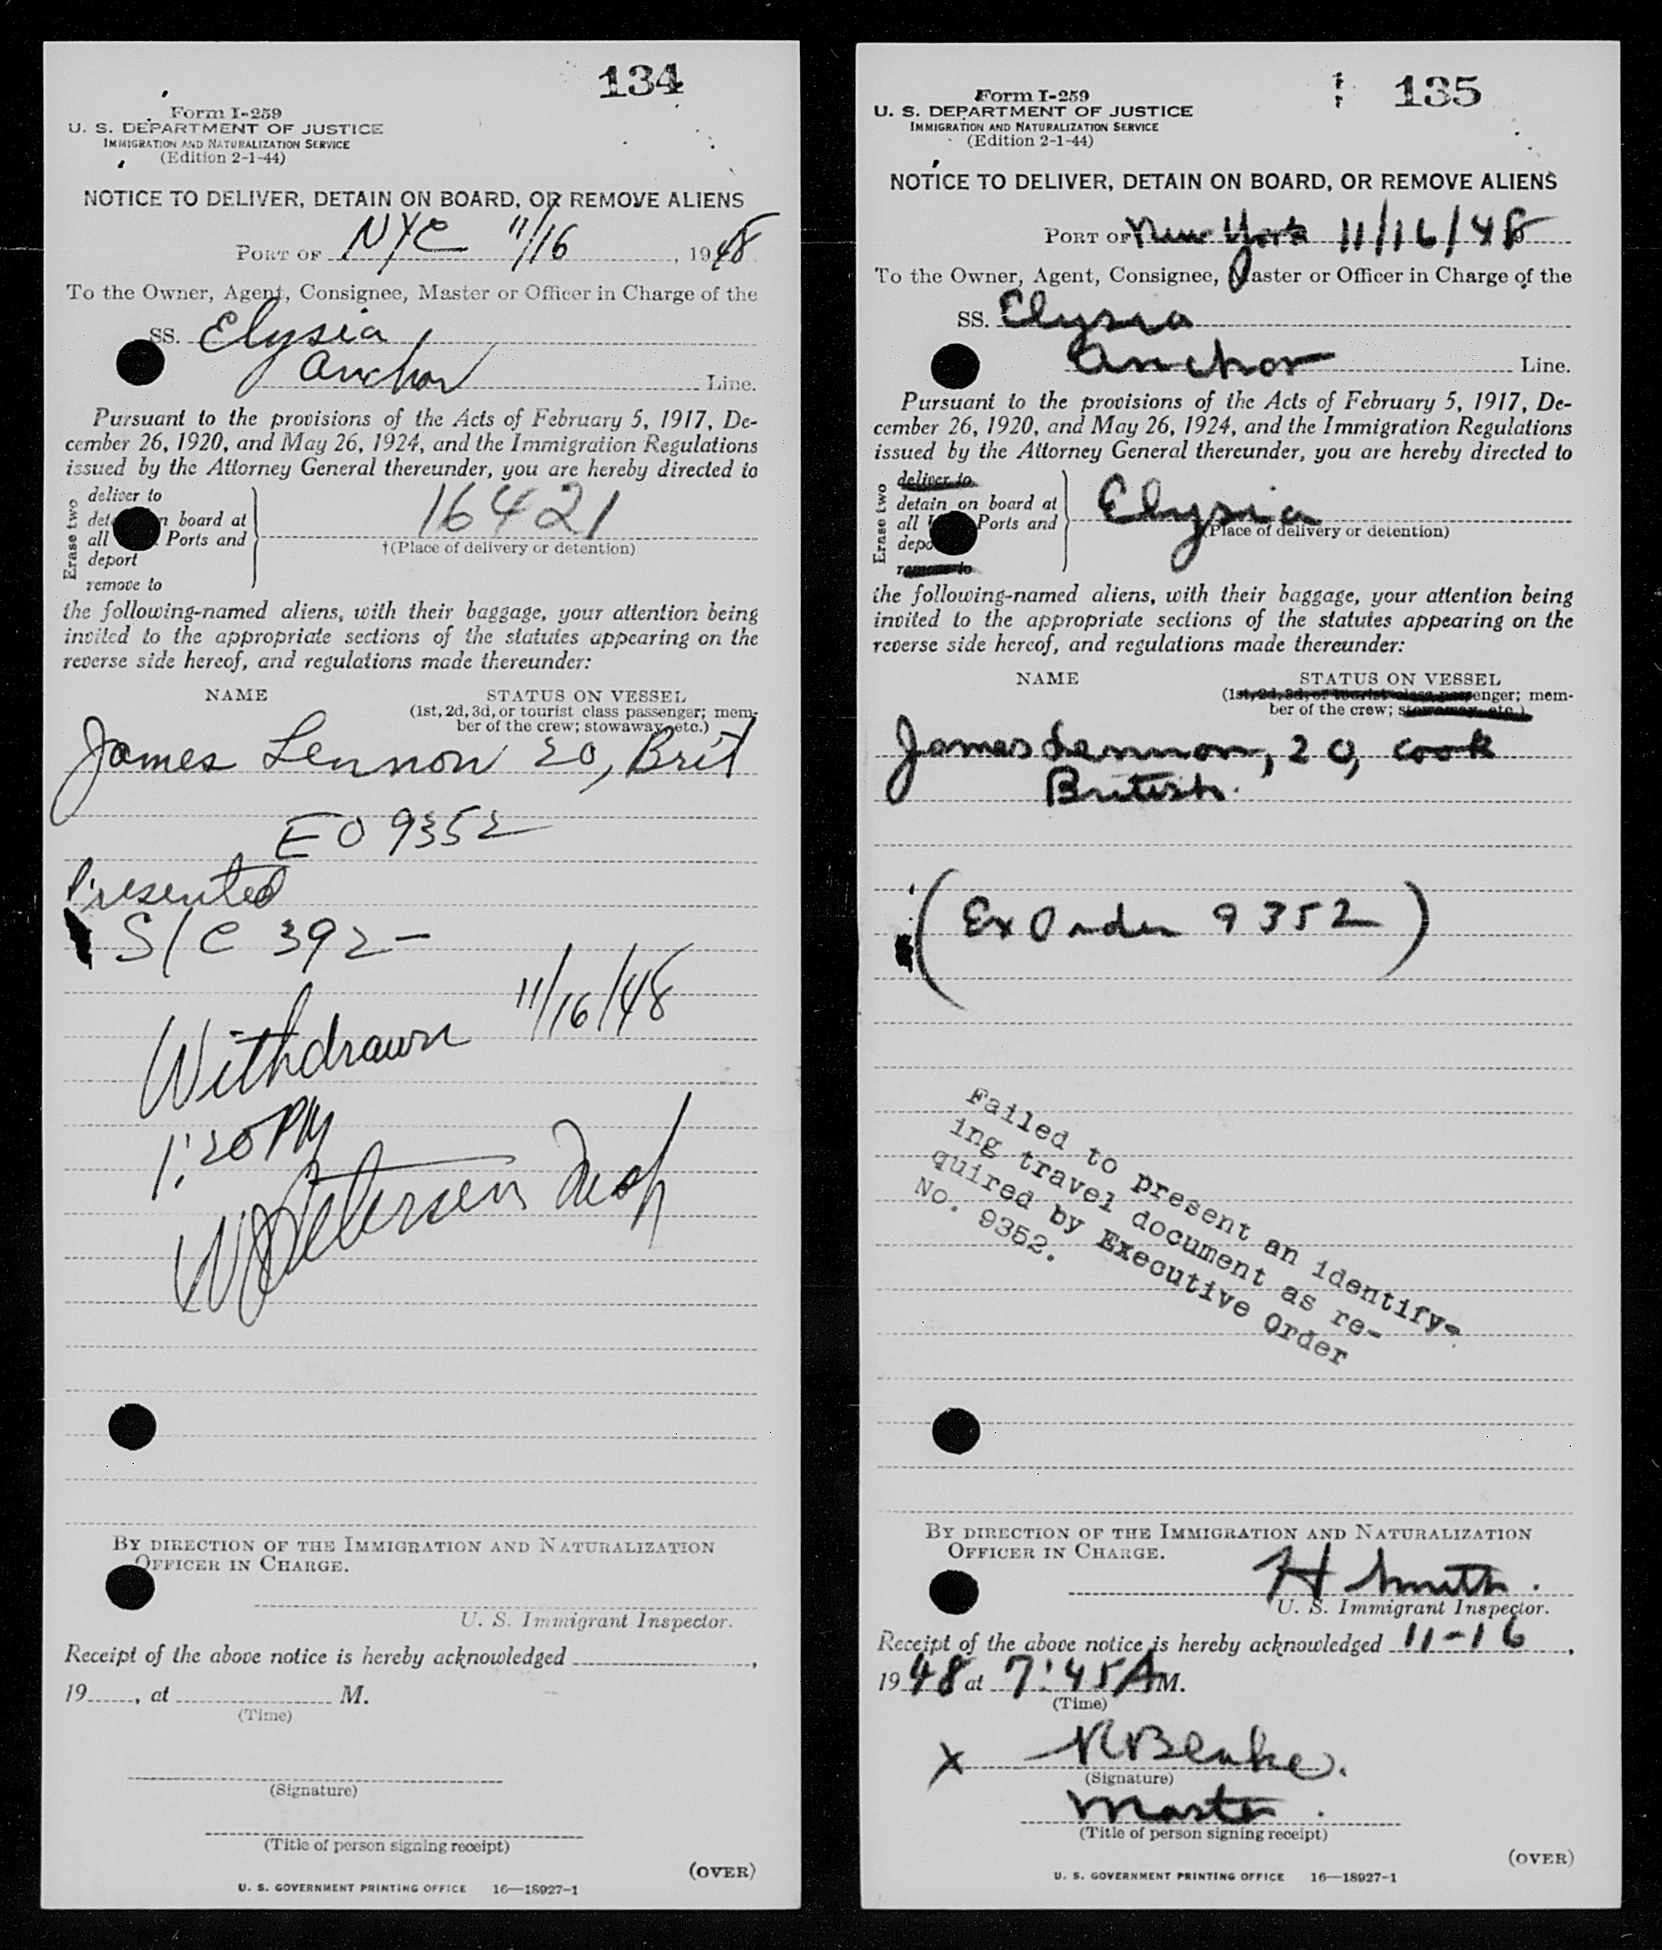 134
Form I-259
U. S. DEPARTMENT OF JUSTICE
IMMIGRATION AND NATURALIZATION SERVICE
(Edition 2-1-44)
NOTICE TO DELIVER, DETAIN ON BOARD, OR REMOVE ALIENS
PORT OF NYC 11/16, 1948
To the Owner, Agent, Consignee, Master or Officer in Charge of the
SS. Elysia
Anchor Line.
Pursuant to the provisions of the Acts of February 5, 1917, De-
cember 26, 1920, and May 26, 1924, and the Immigration Regulations
issued by the Attorney General thereunder, you are hereby directed to
Erase two
deliver to
board at
all Ports and
deport
remove to
16421
†(Place of delivery or detention)
the following-named aliens, with their baggage, your attention being
invited to the appropriate sections of the statutes appearing on the
reverse side hereof, and regulations made thereunder:
NAME STATUS ON VESSEL
(1st, 2d, 3d, or tourist class passenger; mem-
ber of the crew; stowaway, etc.)
James Lennon 20, Brit
EO 9352
Presented
S/C 392-
Withdrawn 11/16/48
1:20 PM
Petersen
BY DIRECTION OF THE IMMIGRATION AND NATURALIZATION
OFFICER IN CHARGE.
U. S. Immigrant Inspector.
Receipt of the above notice is hereby acknowledged ,
19 , at M.
(Time)
(Signature)
(Title of person signing receipt)
(OVER)
U. S. GOVERNMENT PRINTING OFFICE 16—18927-1
135
Form I-259
U. S. DEPARTMENT OF JUSTICE
IMMIGRATION AND NATURALIZATION SERVICE
(Edition 2-1-44)
NOTICE TO DELIVER, DETAIN ON BOARD, OR REMOVE ALIENS
PORT OF New York 11/16/48
To the Owner, Agent, Consignee, Master or Officer in Charge of the
SS. Elysia
Anchor Line.
Pursuant to the provisions of the Acts of February 5, 1917, De-
cember 26, 1920, and May 26, 1924, and the Immigration Regulations
issued by the Attorney General thereunder, you are hereby directed to
Erase two
deliver to
detain on board at
all Ports and
remove to
Elysia
(Place of delivery or detention)
the following-named aliens, with their baggage, your attention being
invited to the appropriate sections of the statutes appearing on the
reverse side hereof, and regulations made thereunder:
NAME STATUS ON VESSEL
(1st, 2d, 3d, or tourist class passenger; mem-
ber of the crew; stowaway, etc.)
James Lennon, 20, cook
British.
(Ex Order 9352)
Failed to present an identify-
ing travel document as re-
quired by Executive Order
No. 9352.
BY DIRECTION OF THE IMMIGRATION AND NATURALIZATION
OFFICER IN CHARGE.
H Smith.
U. S. Immigrant Inspector.
Receipt of the above notice is hereby acknowledged 11-16,
1948 at 7:45 A M.
(Time)
X R Blake.
(Signature)
Master.
(Title of person signing receipt)
(OVER)
U. S. GOVERNMENT PRINTING OFFICE 16—18927-1